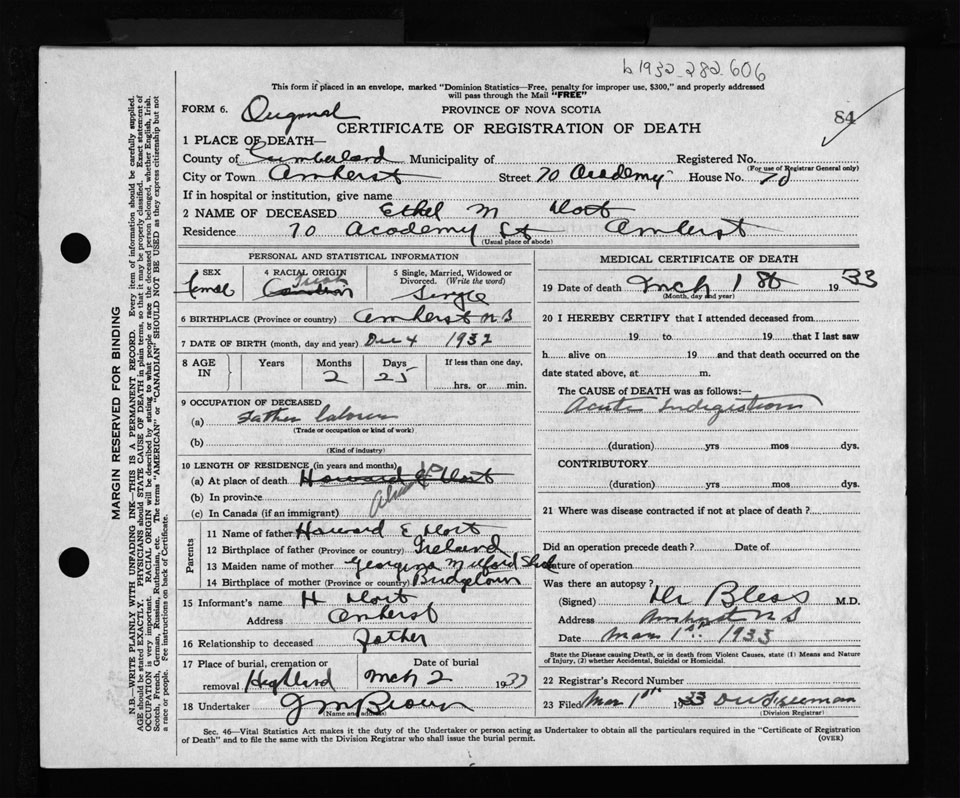 b 1932-282-606
This form if placed in an envelope, marked "Dominion Statistics—Free, penalty for improper use, $300," and properly addressed
will pass through the Mail "FREE"
FORM 6. Original PROVINCE OF NOVA SCOTIA
CERTIFICATE OF REGISTRATION OF DEATH 84
1 PLACE OF DEATH—
County of Cumberland Municipality of Registered No.
(For use of Registrar General only)
City or Town Amherst Street 70 Academy House No. 70
If in hospital or institution, give name
2 NAME OF DECEASED Ethel M
Residence 70 Academy St Amherst
(Usual place of abode)
PERSONAL AND STATISTICAL INFORMATION
SEX 4 RACIAL ORIGIN 5 Single, Married, Widowed or
Divorced. (Write the word)
Femal Irish Single
6 BIRTHPLACE (Province or country) Amherst N S
7 DATE OF BIRTH (month, day and year) Dec 4 1932
8 AGE IN Years Months Days If less than one day,
2 25 hrs. or min.
9 OCCUPATION OF DECEASED
(a) Father laborer
(Trade or occupation or kind of work)
(b)
(Kind of industry)
10 LENGTH OF RESIDENCE (in years and months)
(a) At place of death Howard E
(b) In province
(c) In Canada (if an immigrant)
Parents
11 Name of father Howard E
12 Birthplace of father (Province or country) Ireland
13 Maiden name of mother Georgina Milford
14 Birthplace of mother (Province or country) Bridgetown
15 Informant's name H
Address Amherst
16 Relationship to deceased Father
17 Place of burial, cremation or Date of burial
removal Highland Mch 2 1933
18 Undertaker G M Brown
(Name and address)
MEDICAL CERTIFICATE OF DEATH
19 Date of death Mch 1 st 1933
(Month, day and year)
20 I HEREBY CERTIFY that I attended deceased from
19 to 19 that I last saw
h alive on 19 and that death occurred on the
date stated above, at m.
The CAUSE OF DEATH was as follows:—
Acute Indigestion
(duration) yrs mos dys.
CONTRIBUTORY
(duration) yrs mos dys.
21 Where was disease contracted if not at place of death?
Did an operation precede death? Date of
Nature of operation
Was there an autopsy?
(Signed) Dr Bless M.D.
Address Amherst N S
Date Mar 1st. 1933
State the Disease Causing Death, or in death from Violent Causes, state (1) Means and
Nature of Injury, (2) whether Accidental, Suicidal or Homicidal.
22 Registrar's Record Number
23 Filed Mar 1st 1933
(Division Registrar)
Sec. 46—Vital Statistics Act makes it the duty of the Undertaker or person acting as Undertaker to obtain all the particulars required in the "Certificate of Registration
of Death" and to file the same with the Division Registrar who shall issue the burial permit. (OVER)
MARGIN RESERVED FOR BINDING
N.B.—WRITE PLAINLY WITH UNFADING INK—THIS IS A PERMANENT RECORD. Every item of information should be carefully supplied.
AGE should be stated EXACTLY. PHYSICIANS should STATE CAUSE OF DEATH in plain terms, so that it may be properly classified. Exact statement of
OCCUPATION is very important. RACIAL ORIGIN will be described by stating to what people or race the deceased person belonged, whether English, Irish,
Scotch, French, German, Russian, Ruthenian, etc. The terms "AMERICAN" or "CANADIAN" SHOULD NOT BE USED as they express citizenship but not
a race or people. Fee instructions on back of Certificate.